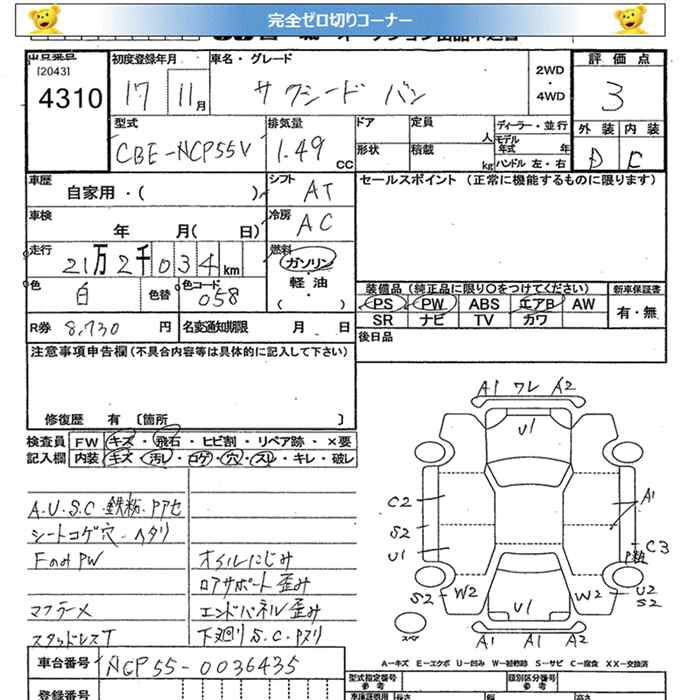 完全ゼロ切りコーナー
[2043]
4310
初度登録年月
17 11月
車名・グレード
サクシード バン
2WD
・
4WD
評価点
3
外装 内装
D C
型式
CBE-NCP55V
排気量
1.49 CC
ドア
定員 人
形状
積載 kg
ディーラー・並行
モデル年式 年
ハンドル 左・右
車歴
自家用・( )
シフト
AT
車検
年 月( 日)
冷房
AC
走行
21万2千034km
燃料
ガソリン
軽油
・
( )
色
白
色替
色コード
058
R券 8,730 円
名変通知期限 月 日
セールスポイント (正常に機能するものに限ります)
装備品(純正品に限り〇をつけてください)
PS PW ABS エアB AW
SR ナビ TV カワ
新車保証書
有・無
後日品
注意事項申告欄(不具合内容等は具体的に記入して下さい)
修復歴 有 〔箇所 〕
検査員記入欄
FW キズ・飛石・ヒビ割・リペア跡・×要
内装 キズ・汚レ・コゲ・穴・スレ・キレ・破レ
A.U.S.C.鉄粉.Pアセ
シートコゲ穴.ヘタリ
FのみPW
マフラーメ
スタッドレスT
オイルにじみ
ロアサポート歪み
エンドパネル歪み
下廻りS.C.Pヌリ
A1 ワレ A2
U1
C2
S2
U1
A1
C3
P類
S2
W2
W2
U2
S2
U1
スペア
A1 A1 A2
A-キズ E-エクボ U-凹み W-補修跡 S-サビ C-腐食 XX-交換済
車台番号
NCP55-0036435
登録番号
型式指定番号
参考
類別区分番号
参考
車検証費用
長さ
幅
高さ